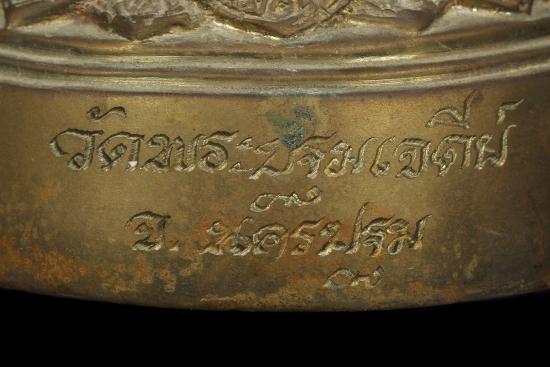 วัดพระปฐมเจดีย์
จ. นครปฐม